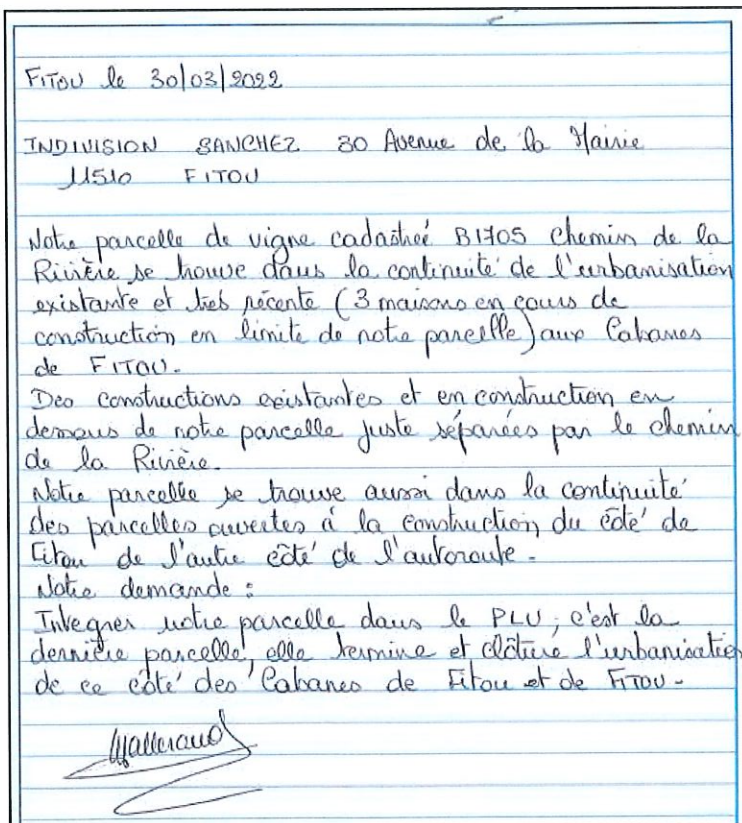 FITOU le 30/03/2022
INDIVISION SANCHEZ 30 Avenue de la Mairie
11510 FITOU
Notre parcelle de vigne cadastreé B1705 chemin de la
Rivière se trouve dans la continuité de l'urbanisation
existante et très récente (3 maisons en cours de
construction en limite de notre parcelle) aux Cabanes
de FITOU.
Des constructions existantes et en construction en
dessous de notre parcelle juste séparées par le chemin
de la Rivière.
Notre parcelle se trouve aussi dans la continuité
des parcelles ouvertes à la construction du côté de
Fitou de l'autre côté de l'autoroute.
Notre demande :
Integrer notre parcelle dans le PLU, c'est la
dernière parcelle, elle termine et clôture l'urbanisation
de ce côté des Cabanes de Fitou et de FITOU.